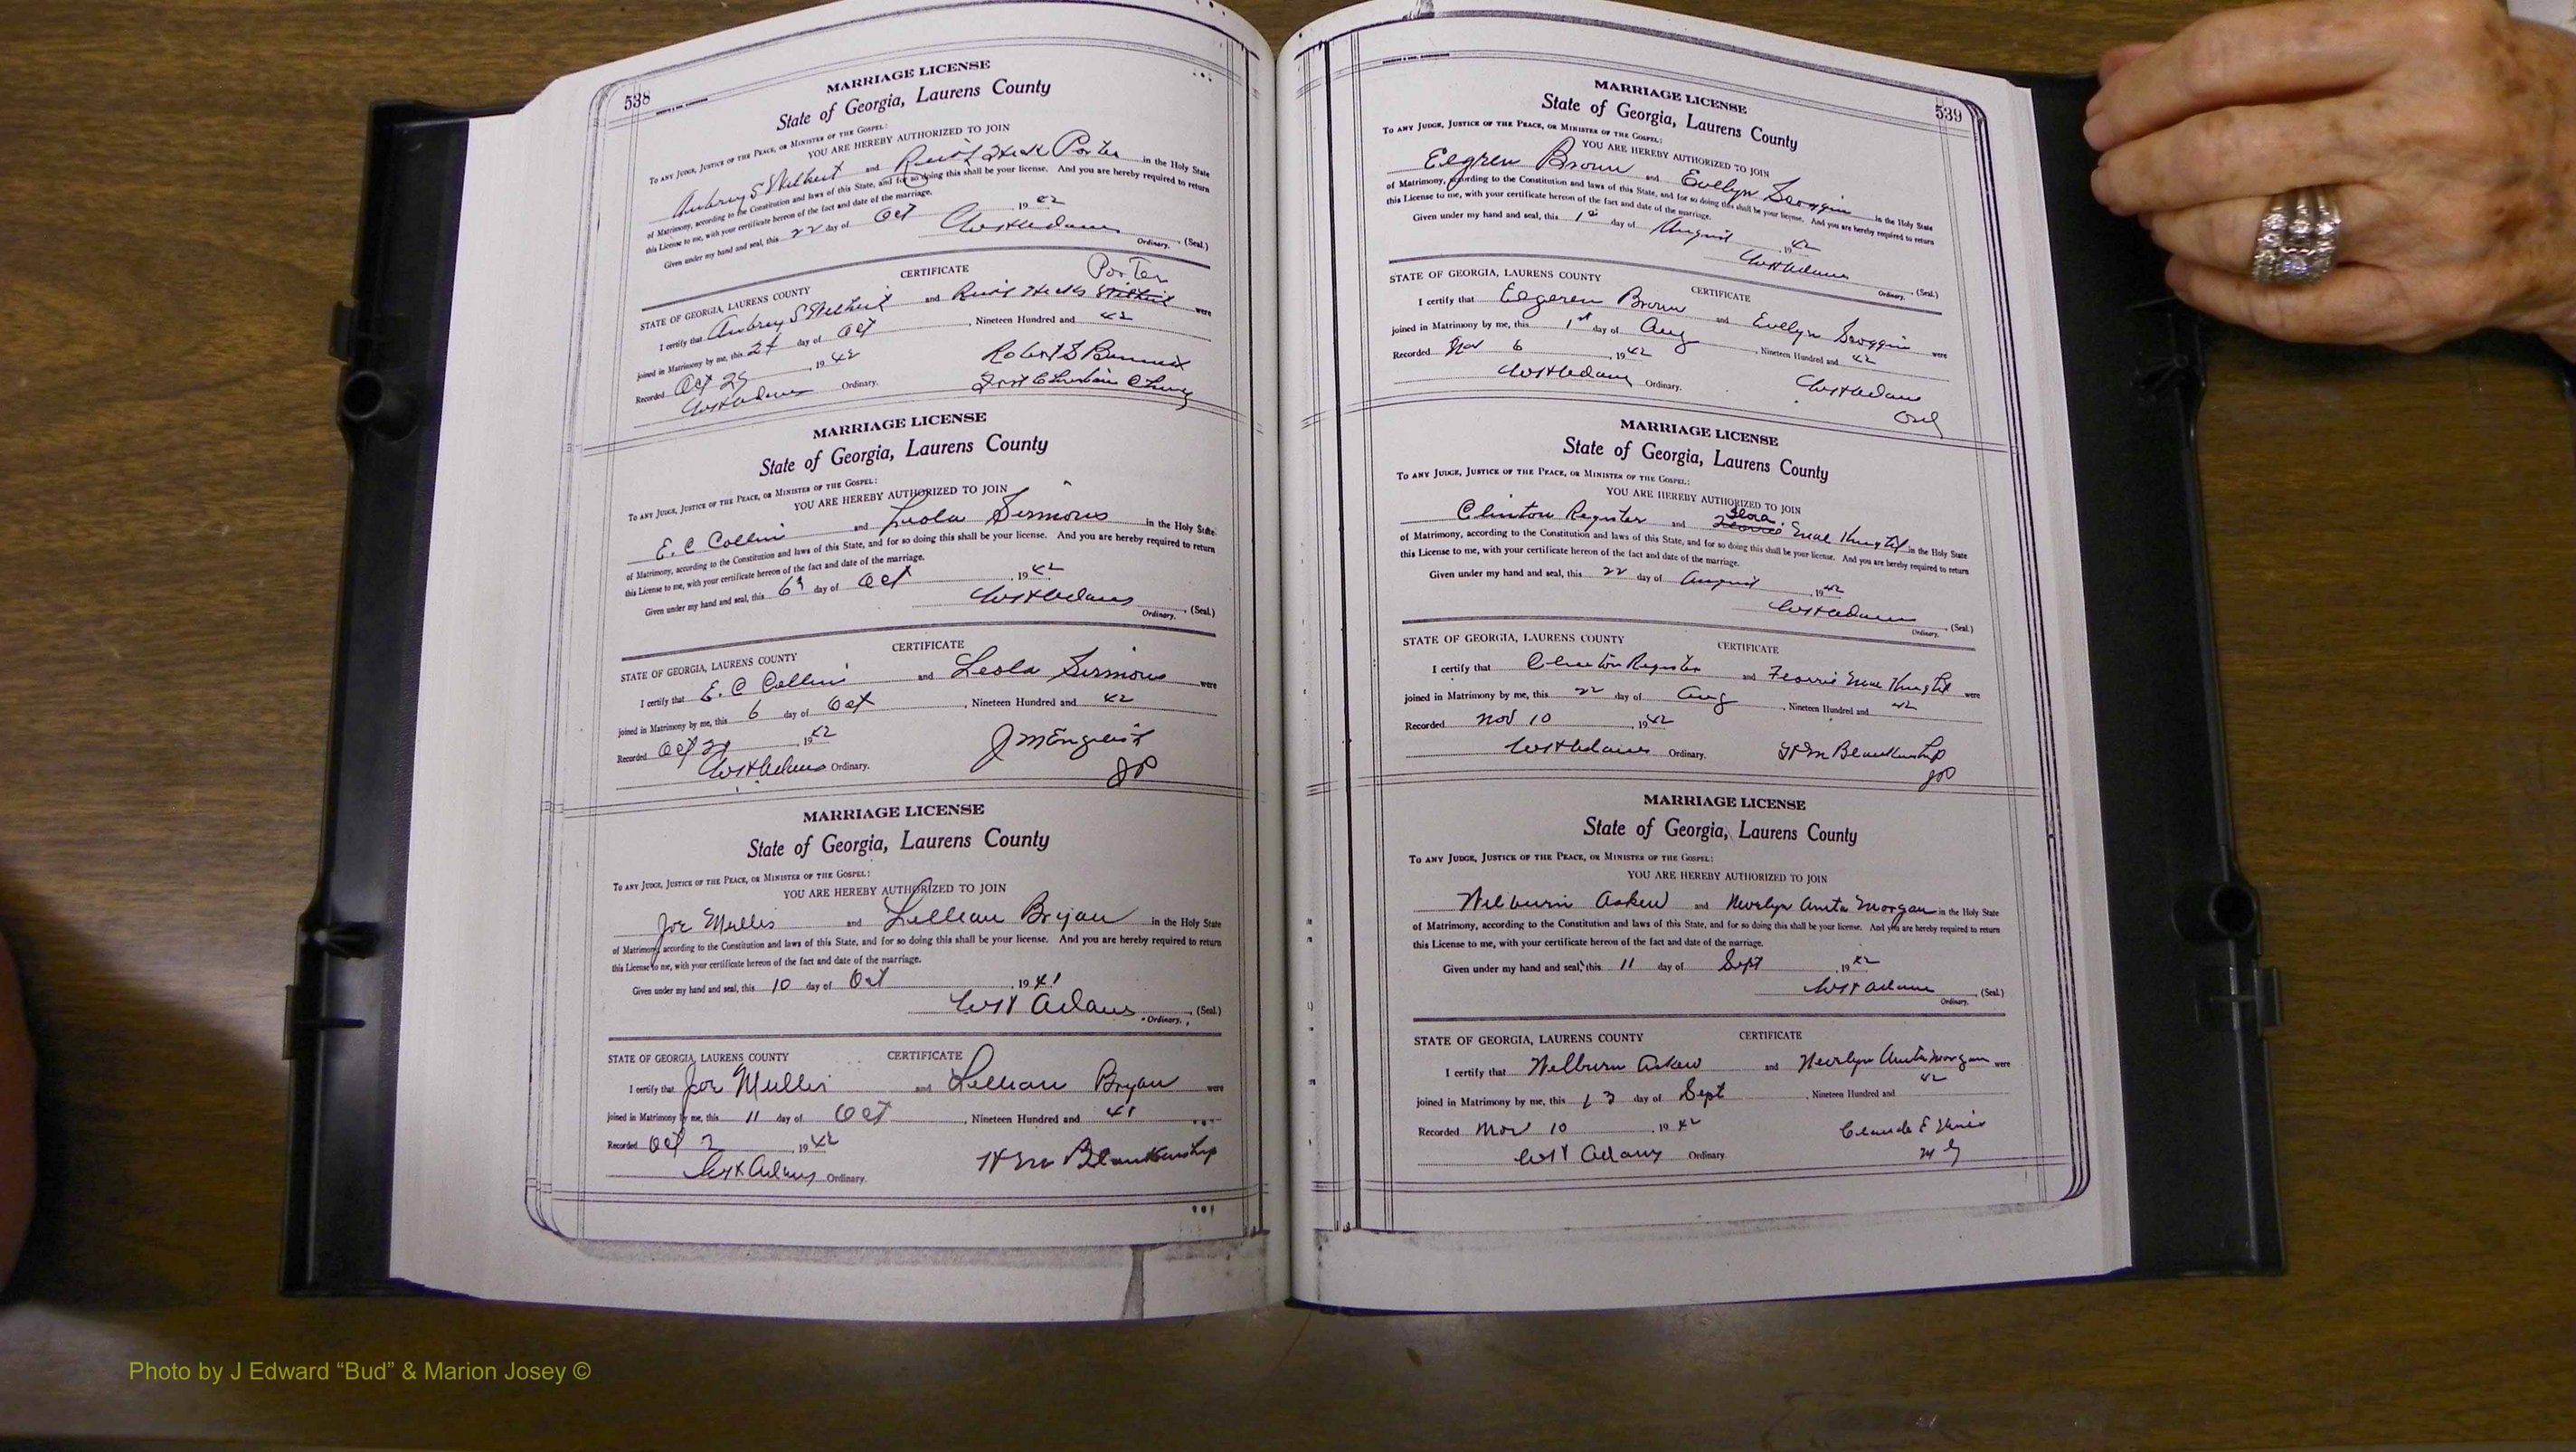 538
MARRIAGE LICENSE
State of Georgia, Laurens County
TO ANY JUDGE, JUSTICE OF THE PEACE, OR MINISTER OF THE GOSPEL:
YOU ARE HEREBY AUTHORIZED TO JOIN
Aubrey S and Porter in the Holy State
of Matrimony, according to the Constitution and laws of this State, and for so doing this shall be your license. And you are hereby required to return
this License to me, with your certificate hereon of the fact and date of the marriage.
Given under my hand and seal, this 22 day of Oct, 1942
(Seal.)
Ordinary.
CERTIFICATE
Porter
STATE OF GEORGIA, LAURENS COUNTY
I certify that Aubrey S and Hicks were
joined in Matrimony by me, this day of Oct, Nineteen Hundred and 42
Recorded Oct, 1942
Ordinary.
MARRIAGE LICENSE
State of Georgia, Laurens County
TO ANY JUDGE, JUSTICE OF THE PEACE, OR MINISTER OF THE GOSPEL:
YOU ARE HEREBY AUTHORIZED TO JOIN
E. C Collins and Leola Sermons in the Holy State
of Matrimony, according to the Constitution and laws of this State, and for so doing this shall be your license. And you are hereby required to return
this License to me, with your certificate hereon of the fact and date of the marriage.
Given under my hand and seal, this day of Oct, 1942
(Seal.)
Ordinary.
CERTIFICATE
STATE OF GEORGIA, LAURENS COUNTY
I certify that E. C Collins and Leola Sermons were
joined in Matrimony by me, this 6 day of Oct, Nineteen Hundred and 42
Recorded Oct, 1942
Ordinary.
JP
MARRIAGE LICENSE
State of Georgia, Laurens County
TO ANY JUDGE, JUSTICE OF THE PEACE, OR MINISTER OF THE GOSPEL:
YOU ARE HEREBY AUTHORIZED TO JOIN
Joe Mullis and Lillian Bryan in the Holy State
of Matrimony, according to the Constitution and laws of this State, and for so doing this shall be your license. And you are hereby required to return
this License to me, with your certificate hereon of the fact and date of the marriage.
Given under my hand and seal, this 10 day of Oct, 1941
Adams (Seal.)
Ordinary.
STATE OF GEORGIA, LAURENS COUNTY CERTIFICATE
I certify that Joe Mullis and Lillian Bryan were
joined in Matrimony by me, this 11 day of Oct, Nineteen Hundred and 41
Recorded Oct 2, 1942
Adams Ordinary.
H M Blankenship
539
MARRIAGE LICENSE
State of Georgia, Laurens County
TO ANY JUDGE, JUSTICE OF THE PEACE, OR MINISTER OF THE GOSPEL:
YOU ARE HEREBY AUTHORIZED TO JOIN
Brown and Evelyn Scoggin in the Holy State
of Matrimony, according to the Constitution and laws of this State, and for so doing this shall be your license. And you are hereby required to return
this License to me, with your certificate hereon of the fact and date of the marriage.
Given under my hand and seal, this 1st day of August, 1942
(Seal.)
Ordinary.
STATE OF GEORGIA, LAURENS COUNTY CERTIFICATE
I certify that Brown and Evelyn Scoggin were
joined in Matrimony by me, this 1st day of Aug, Nineteen Hundred and 42
Recorded Nov 6, 1942
Ordinary.
Ord
MARRIAGE LICENSE
State of Georgia, Laurens County
TO ANY JUDGE, JUSTICE OF THE PEACE, OR MINISTER OF THE GOSPEL:
YOU ARE HEREBY AUTHORIZED TO JOIN
Clinton Register and in the Holy State
of Matrimony, according to the Constitution and laws of this State, and for so doing this shall be your license. And you are hereby required to return
this License to me, with your certificate hereon of the fact and date of the marriage.
Given under my hand and seal, this 22 day of August, 1942
(Seal.)
Ordinary.
STATE OF GEORGIA, LAURENS COUNTY CERTIFICATE
I certify that Clinton Register and were
joined in Matrimony by me, this 22 day of Aug, Nineteen Hundred and 42
Recorded Nov 10, 1942
Ordinary.
H M Blankenship
JP
MARRIAGE LICENSE
State of Georgia, Laurens County
TO ANY JUDGE, JUSTICE OF THE PEACE, OR MINISTER OF THE GOSPEL:
YOU ARE HEREBY AUTHORIZED TO JOIN
Wilburn Askew and Anita Morgan in the Holy State
of Matrimony, according to the Constitution and laws of this State, and for so doing this shall be your license. And you are hereby required to return
this License to me, with your certificate hereon of the fact and date of the marriage.
Given under my hand and seal, this 11 day of Sept, 1942
Adams (Seal.)
Ordinary.
STATE OF GEORGIA, LAURENS COUNTY CERTIFICATE
I certify that Wilburn Askew and Anita Morgan were
joined in Matrimony by me, this 13 day of Sept, Nineteen Hundred and 42
Recorded Nov 10, 1942
Adams Ordinary
Claude E
M G
Photo by J Edward “Bud” & Marion Josey ©